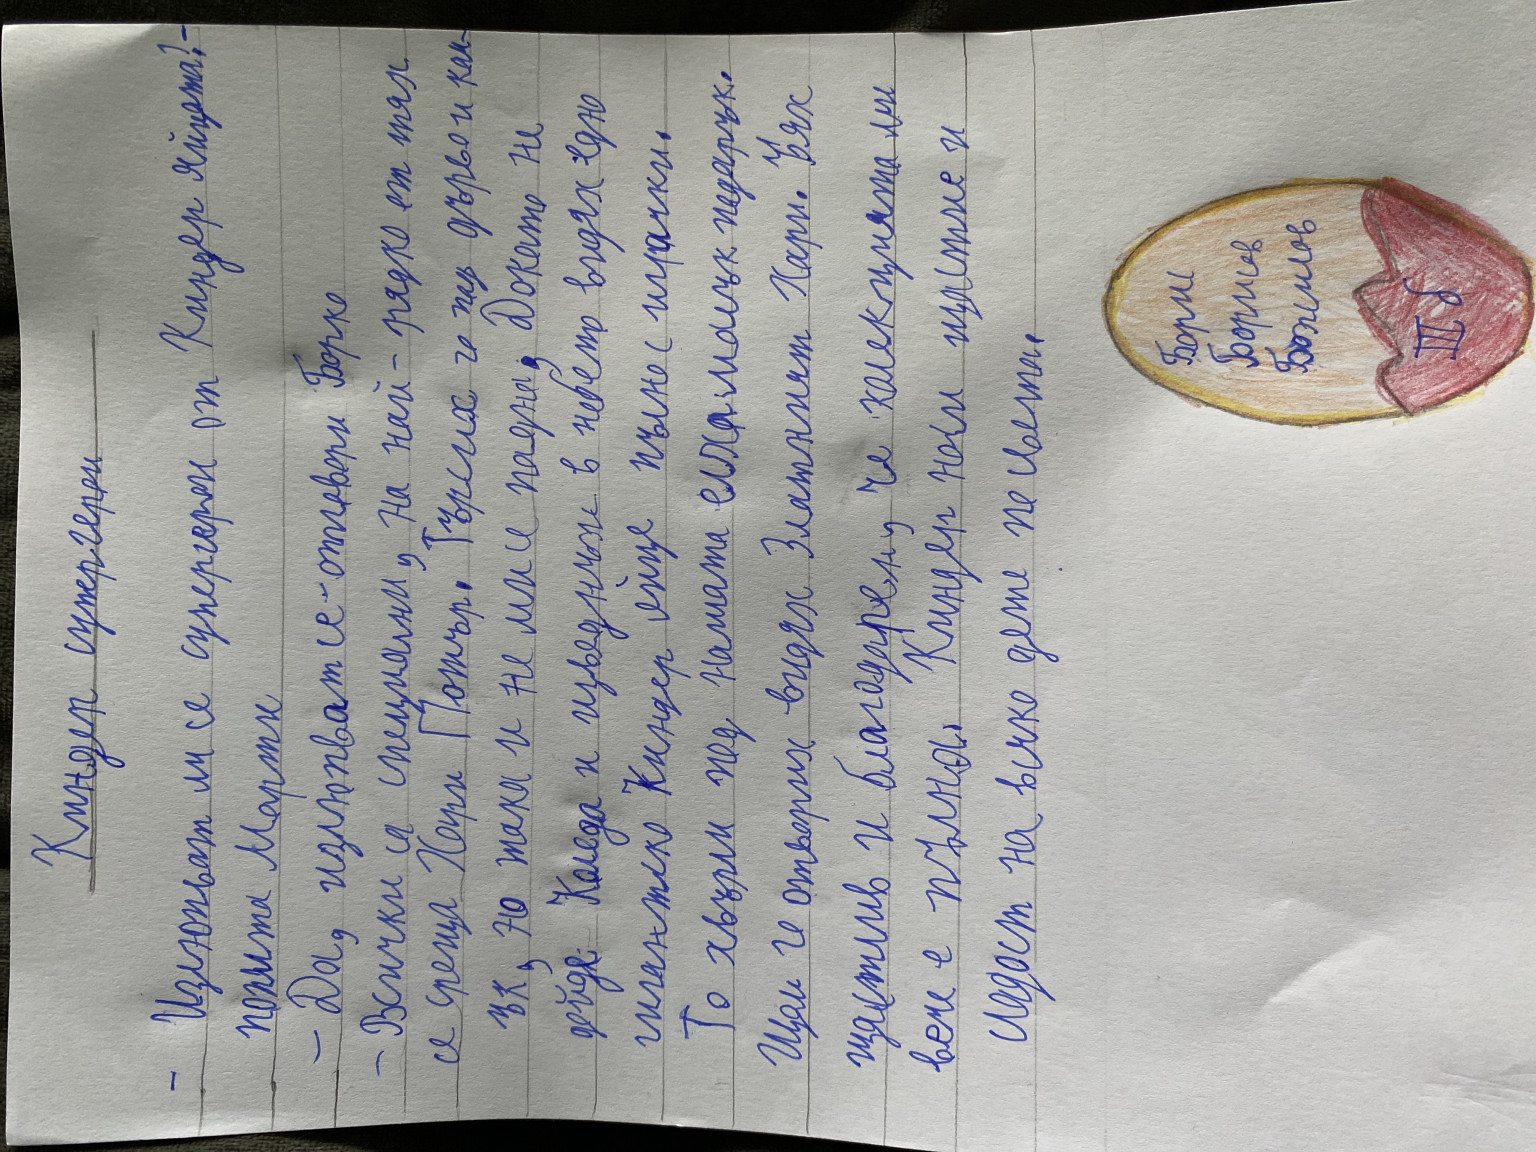 Киндер супергерои
- Използват ли се супергерои от Киндер яйцата? -
попита Марти
- Да, използват се - отговори Борко
- Всички са специални, на най - рядко от тях
се среща Хари Потър. Търсих го под дърво и кам-
ък, но така и не ми се падна, Докато не
дойде Коледа и изведнъж в небето видях едно
гигантско Киндер яйце пълно с играчки.
То хвърли под нашата елха малък подарък.
Щом го отворих видях Златният Хари. Бях
щастлив и благодарен, че колекцията ми
вече е пълна. Киндер носи щастие и
сладост на всяко дете по света.
Борис
Борисов
Божилов
III б